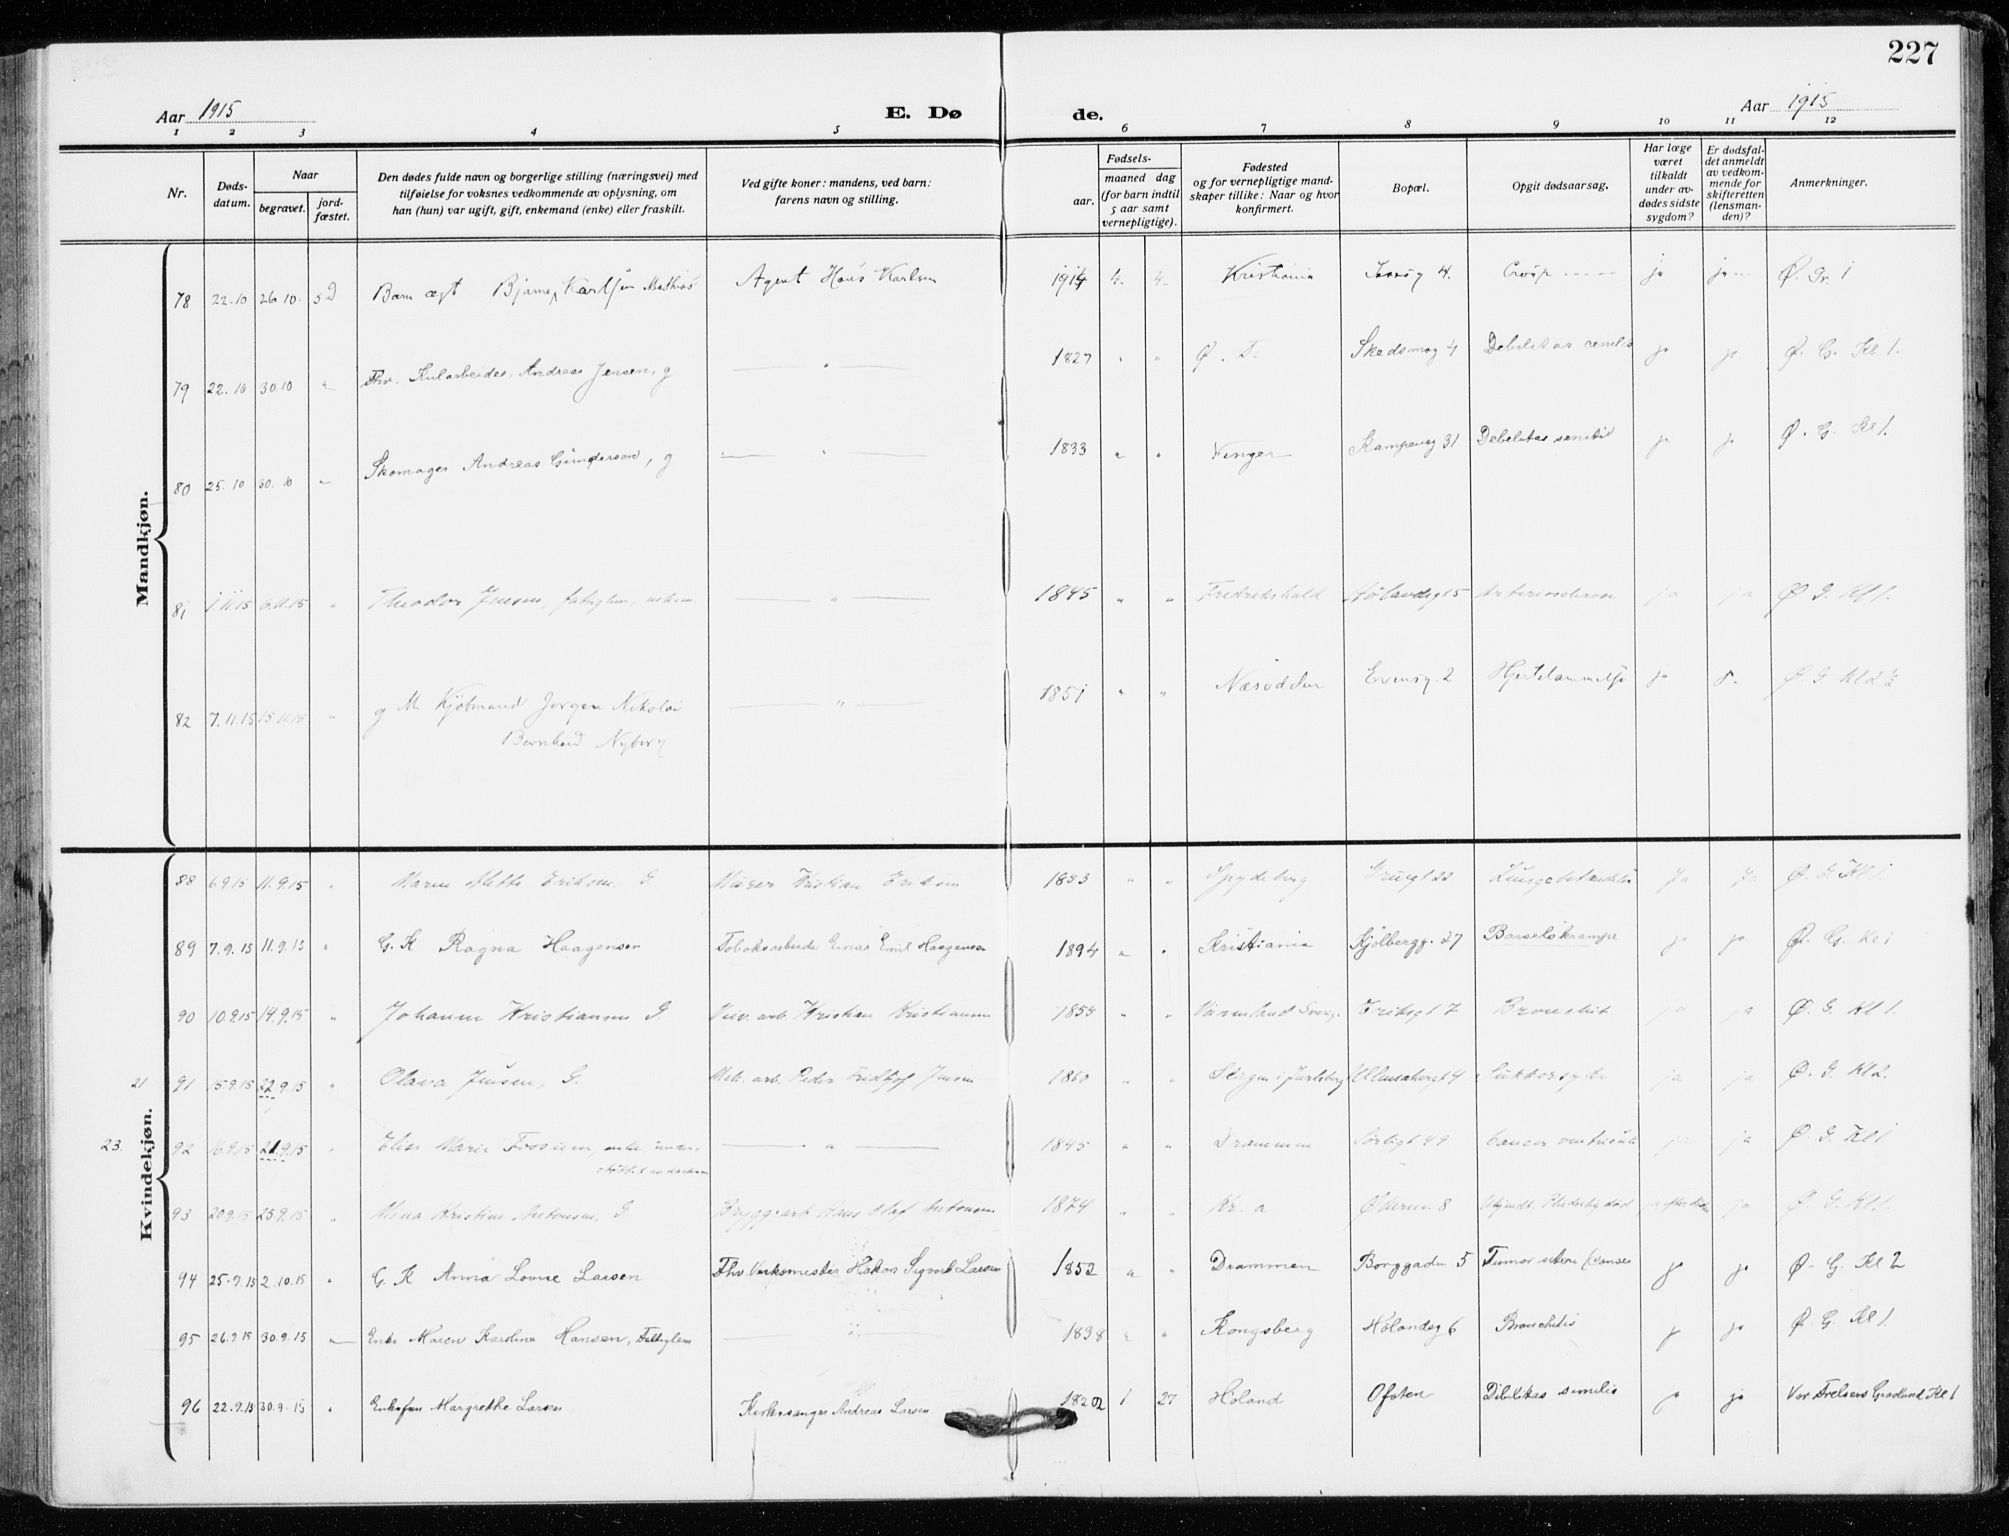 227
Aar 1915
E. Dø
de.
Aar 1915
1 2 3 4 5 6 7 8 9 10 11 12
Nr.
Døds-
datum.
Naar
begravet.
jord-
fæstet.
Den dødes fulde navn og borgerlige stilling (næringsvei) med
tilføielse for voksnes vedkommende av oplysning, om
han (hun) var ugift, gift, enkemand (enke) eller fraskilt.
Ved gifte koner: mandens, ved barn:
farens navn og stilling.
Fødsels-
aar.
maaned dag
(for barn indtil
5 aar samt
vernepligtige).
Fødested
og for vernepligtige mand-
skaper tillike: Naar og hvor
konfirmert.
Bopæl.
Opgit dødsaarsag.
Har læge
været
tilkaldt
under av-
dødes sidste
sygdom?
Er dødsfal-
det anmeldt
av vedkom-
mende for
skifteretten
(lensman-
den)?
Anmerkninger.
Mandkjøn.
78 22.10 26 10. Barn ægt Bjarne Karlsen Mathias Agent Hans Karlsen 1914 4. 4. Kristiania 4. Croup ja ja Ø. Gr. 1
79 22.10 30.10 " Fhv. Andreas Jensen, g " 1827 " " Ø. Skedsmog 4 Debilitas senilis ja ja Ø. G. Kl 1.
80 25.10 30.10 " Skomager Andreas Gundersen, g " 1833 " " Vinger Kampensg 31 Debilitas senilis ja ja Ø. G. Kl 1.
81 1.11.15 6.11.15 " Theodor Jensen, fattiglem, " 1845 " " Fredrikshald Hølandsgt 5 ja ja Ø. G. Kl 1.
82 7.11.15 15.11.15 " g M Kjøbmand Jørgen Nikolai " 1851 " " Næsodden 2 Hjertelammelse ja Ø. G Kl 2 ½
Bernhard Nyberg
Kvindekjøn.
88 6.9.15 11.9.15 " Mette Eriksen. G. Murer Kristian Eriksen 1853 " " Spydeberg 22 Lungebetændelse Ja Ja Ø. G. Kl 1
89 7.9.15 11.9.15 " G. K Ragna Haagensen Tobaksarbeide Einar Emil Haagensen 1894 " " Kristiania Kjølbergg. 27 Barselskrampe ja ja Ø. G. Kl 1
90 10.9.15 14.9.15 " Johanne Kristiansen G. Kristian Kristiansen 1855 " " Värmland Sverg. Eriksgt 7 Bronchit ja ja Ø. G. Kl 1.
21 91 15.9.15 22.9.15 " Olava Jensen, G. Mek. arb. Peder Fridtjof Jensen 1860 " " Slagen i Jarlsberg 4 Sukkersyke ja ja Ø. G. Kl 2.
23. 92 16.9.15 21.9.15 " Elise Marie Fossum, enke under- " 1845 " " Drammen Sørligt 49 Cancer ventriculi ja ja Ø. G. Kl 1
støttet av
93 20.9.15 25.9.15 " Mina Kristine Antonsen, G Bryggearb Hans Olaf Antonsen 1874 " " Kr. a 8 ja Ø. G. Kl 1.
94 25.9.15 2.10.15 " G. K Anna Lovise Larsen Fhv. Verksmester Hakon Sigvart Larsen 1852 " " Drammen Borggaden 5 Tumor (Cancer ja ja Ø. G. Kl 2
95 26.9.15 30.9.15 " Enke Maren Karoline Hansen, Fattiglem " 1838 " " Kongsberg Hølandsg 6 Bronchitis ja ja Ø. G. Kl 1.
96 22.9.15 30.9.15 " Enkefru Margrethe Larsen Kirkesanger Andreas Larsen 1 27 Høland Ofoten Debilitas senilis ja ja Vor Frelsers Gravlund Kl 1